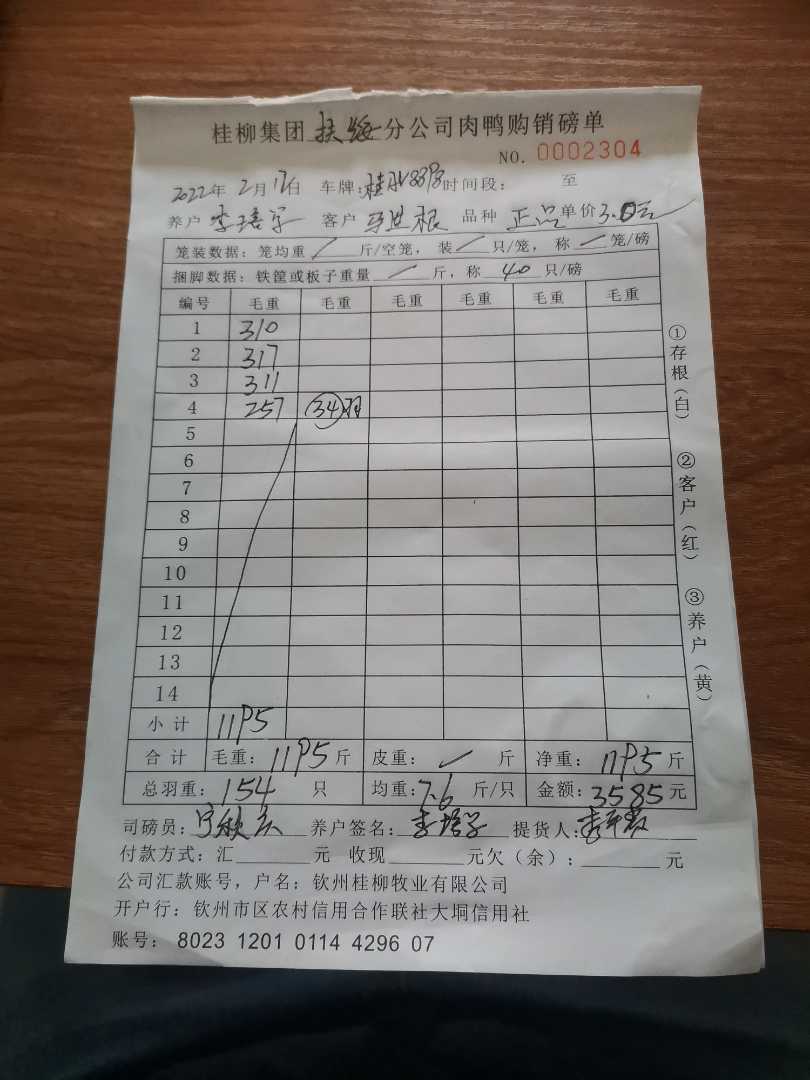 桂柳集团扶绥分公司肉鸭购销磅单
NO. 0002304
2022年2月17日 车牌: 时间段: 至
养户 李培宇 客户 马世根 品种 正品 单价3.0元
笼装数据: 笼均重 / 斤/空笼, 装 / 只/笼, 称 / 笼/磅
捆脚数据: 铁筐或板子重量 / 斤, 称 40 只/磅
编号 毛重 毛重 毛重 毛重 毛重 毛重
1 310
2 317
3 311
4 257 34羽
5
6
7
8
9
10
11
12
13
14
小计 1195
合计 毛重: 1195斤 皮重: / 斤 净重: 1195斤
总羽重: 154 只 均重: 7.6 斤/只 金额: 3585元
司磅员: 养户签名: 李培宇 提货人:
付款方式: 汇 元 收现 元欠(余): 元
公司汇款账号, 户名: 钦州桂柳牧业有限公司
开户行: 钦州市区农村信用合作联社大垌信用社
账号: 8023 1201 0114 4296 07
①存根(白) ②客户(红) ③养户(黄)